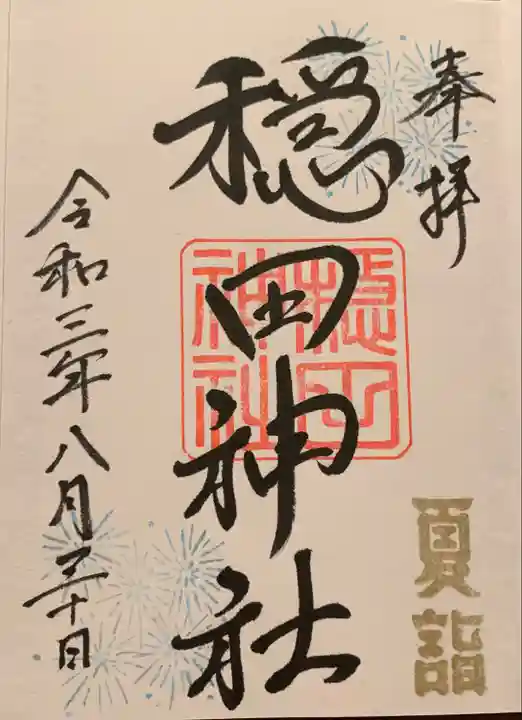 奉拝
穏田神社
穏田
神社
夏詣
令和三年八月三十日